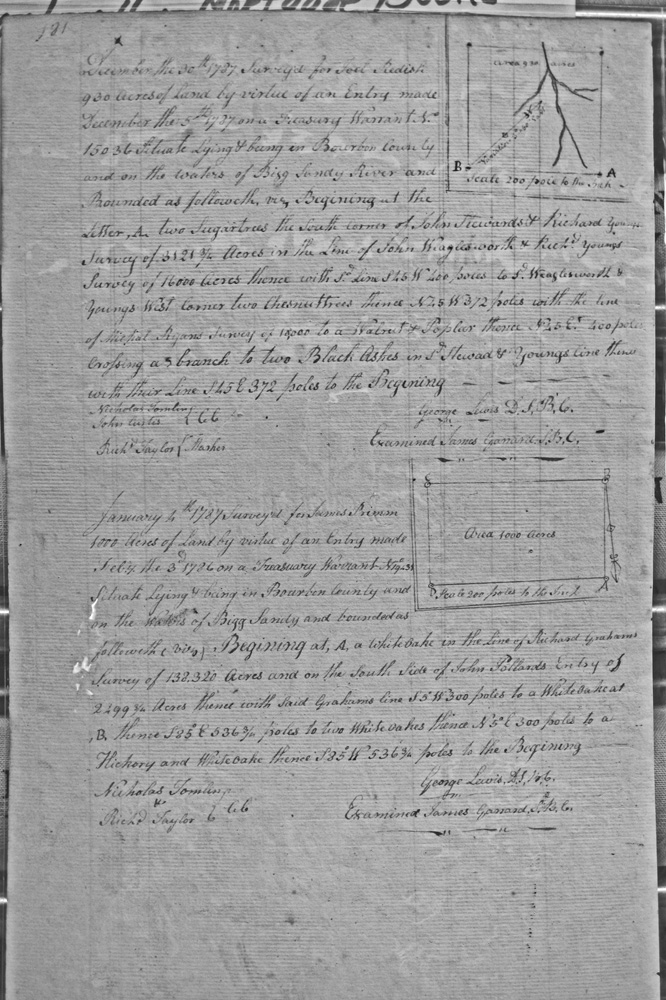 181
December the 30th 1787 Survey'd for Joel Redish
930 acres of Land by virtue of an Entry made
December the 5th 1787 on a Treasury Warrant No
15036 Situate Lying & being in Bourbon County
and on the waters of Bigg Sandy River and
Bounded as followeth, viz, Begining at the
Letter, A, two Sugartrees the South corner of John Stewards & Richard Youngs
Survey of 3121 3/4 Acres in the Line of John Waglesworth & Richd Youngs
Survey of 16000 acres thence with Sd Line S45 W 400 poles to Sd Weaglesworth &
Youngs West Corner two Chesnuttrees thence N45 W 372 poles with the line
of Michal Ryans Survey of to a Walnut & Poplar thence N45 Et 400 poles
Crossing a branch to two Black Ashes in Sd Steward & Youngs line thence
with their Line S45 E 372 poles to the Begining
Nicholas Tomling
John Curtis } CC
Richd Taylor { Marker
George Lewis D.S,B,C.
Examined James Garrard, S,B,C,
Area 930 acres
B
A
Scale 200 pole to the Inch
January 4th 1787 Surveyed for James Primm
1000 Acres of Land by virtue of an Entry made
the 3d 1786 on a Treasuary Warrant
Situate Lying & being in Bourbon County and
on the Waters of Bigg Sandy and bounded as
followeth (Viz,) Begining at, A, a White oake in the Line of Richard Grahams
Survey of 138,320 Acres and on the South Side of John Pollards Entry of
2299 3/4 Acres thence with Said Grahams line S5 W 300 poles to a White oake at
,B, thence S85 E 536 3/4 poles to two White oakes thence N5 E 300 poles to a
Hickory and White oake thence S85 W 536 3/4 poles to the Begining
Nicholas Tomling
Richd Taylor CC
George Lewis, D,S,B,C.
Examined James Garrard, S,B,C,
Area 1000 acres
Scale 200 poles to the Inch